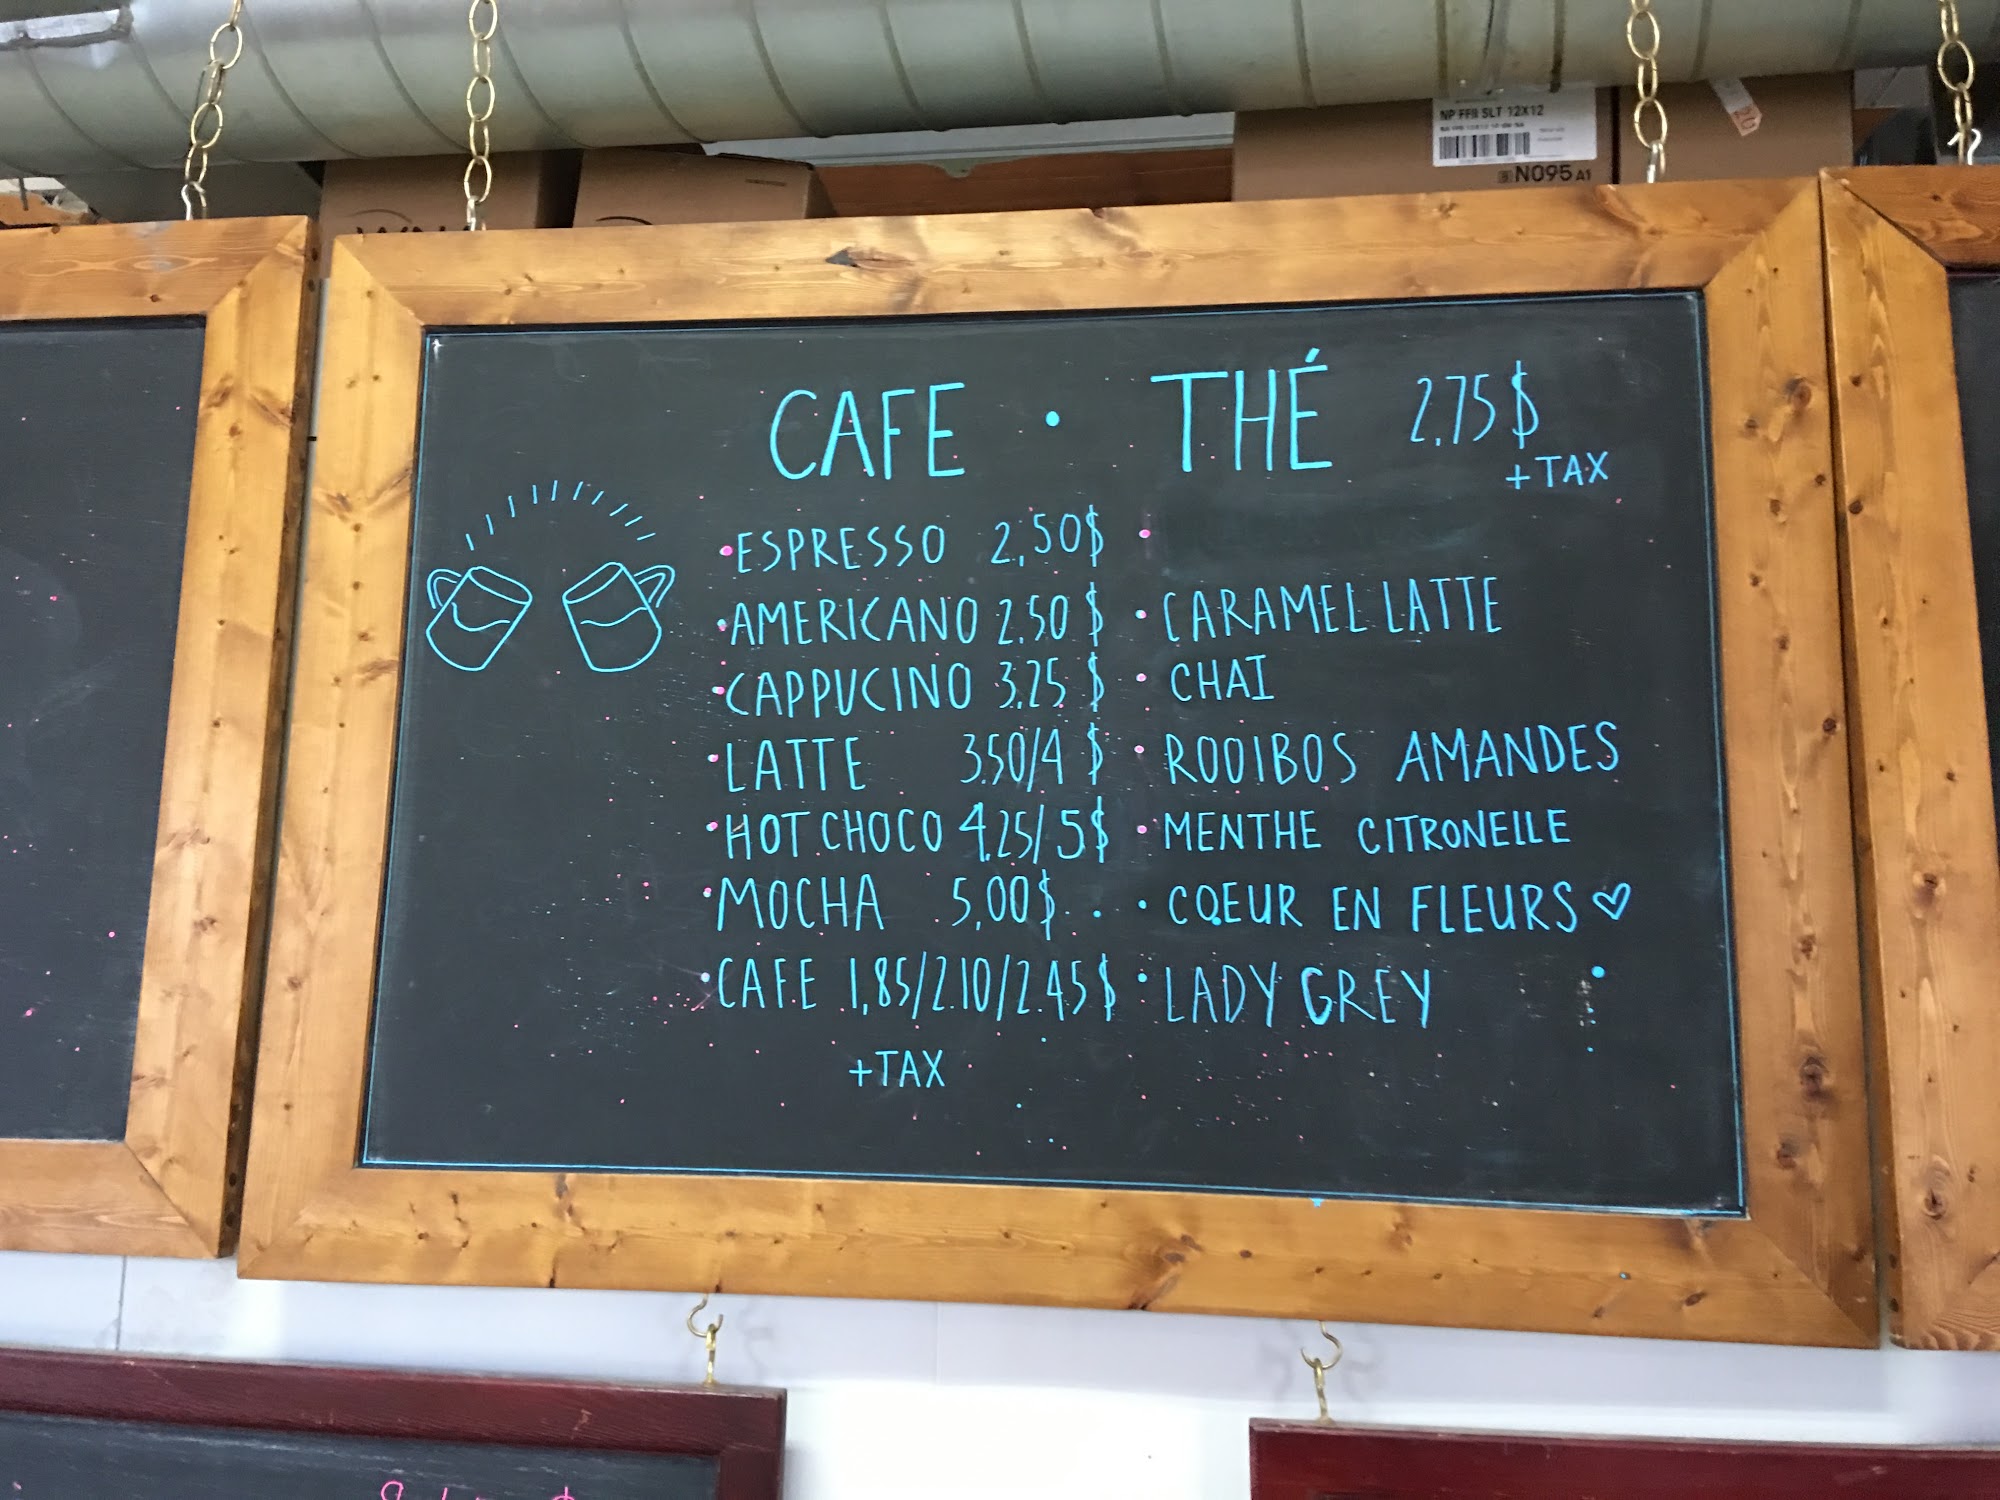 NP FFB SLT 12X12
N095 A1
CAFE • THÉ 2,75$
+TAX
• ESPRESSO 2,50$
• AMERICANO 2.50 $
• CAPPUCINO 3.25 $
• LATTE 3.50/4 $
• HOT CHOCO 4.25/5$
• MOCHA 5,00$
• CAFE 1,85/2.10/2.45$
+TAX
•
• CARAMEL LATTE
• CHAI
• ROOIBOS AMANDES
• MENTHE CITRONELLE
• CŒUR EN FLEURS ♡
• LADY GREY